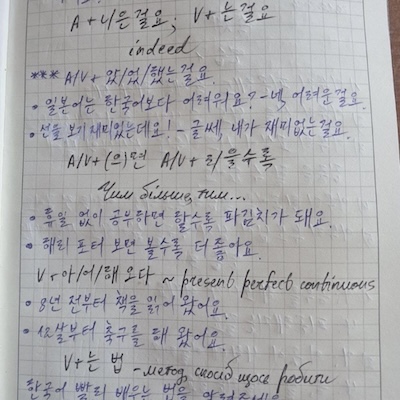 A+ㄴ/은걸요; V+는걸요
indeed
*** A/V+았/었/했는걸요.
• 일본어는 한국어보다 어려워요? - 넥, 어려운걸요.
• 선을 보기 재미있는데요! - 글쎄, 내가 재미없는걸요.
A/V+(으)면 A/V+ㄹ/을수록
Чим більше, тим...
• 휴일 없이 공부하면 할수록 파김치가 돼요.
• 해리 포터 보면 볼수록 더 좋아요.
V+아/어/해 오다 ~ present perfect continuous
• 8년 전부터 책을 읽어 왔어요.
• 12살부터 축구를 해 왔어요.
V+는 법 - метод, спосіб щось робити
한국어 빨리 배우는 법을